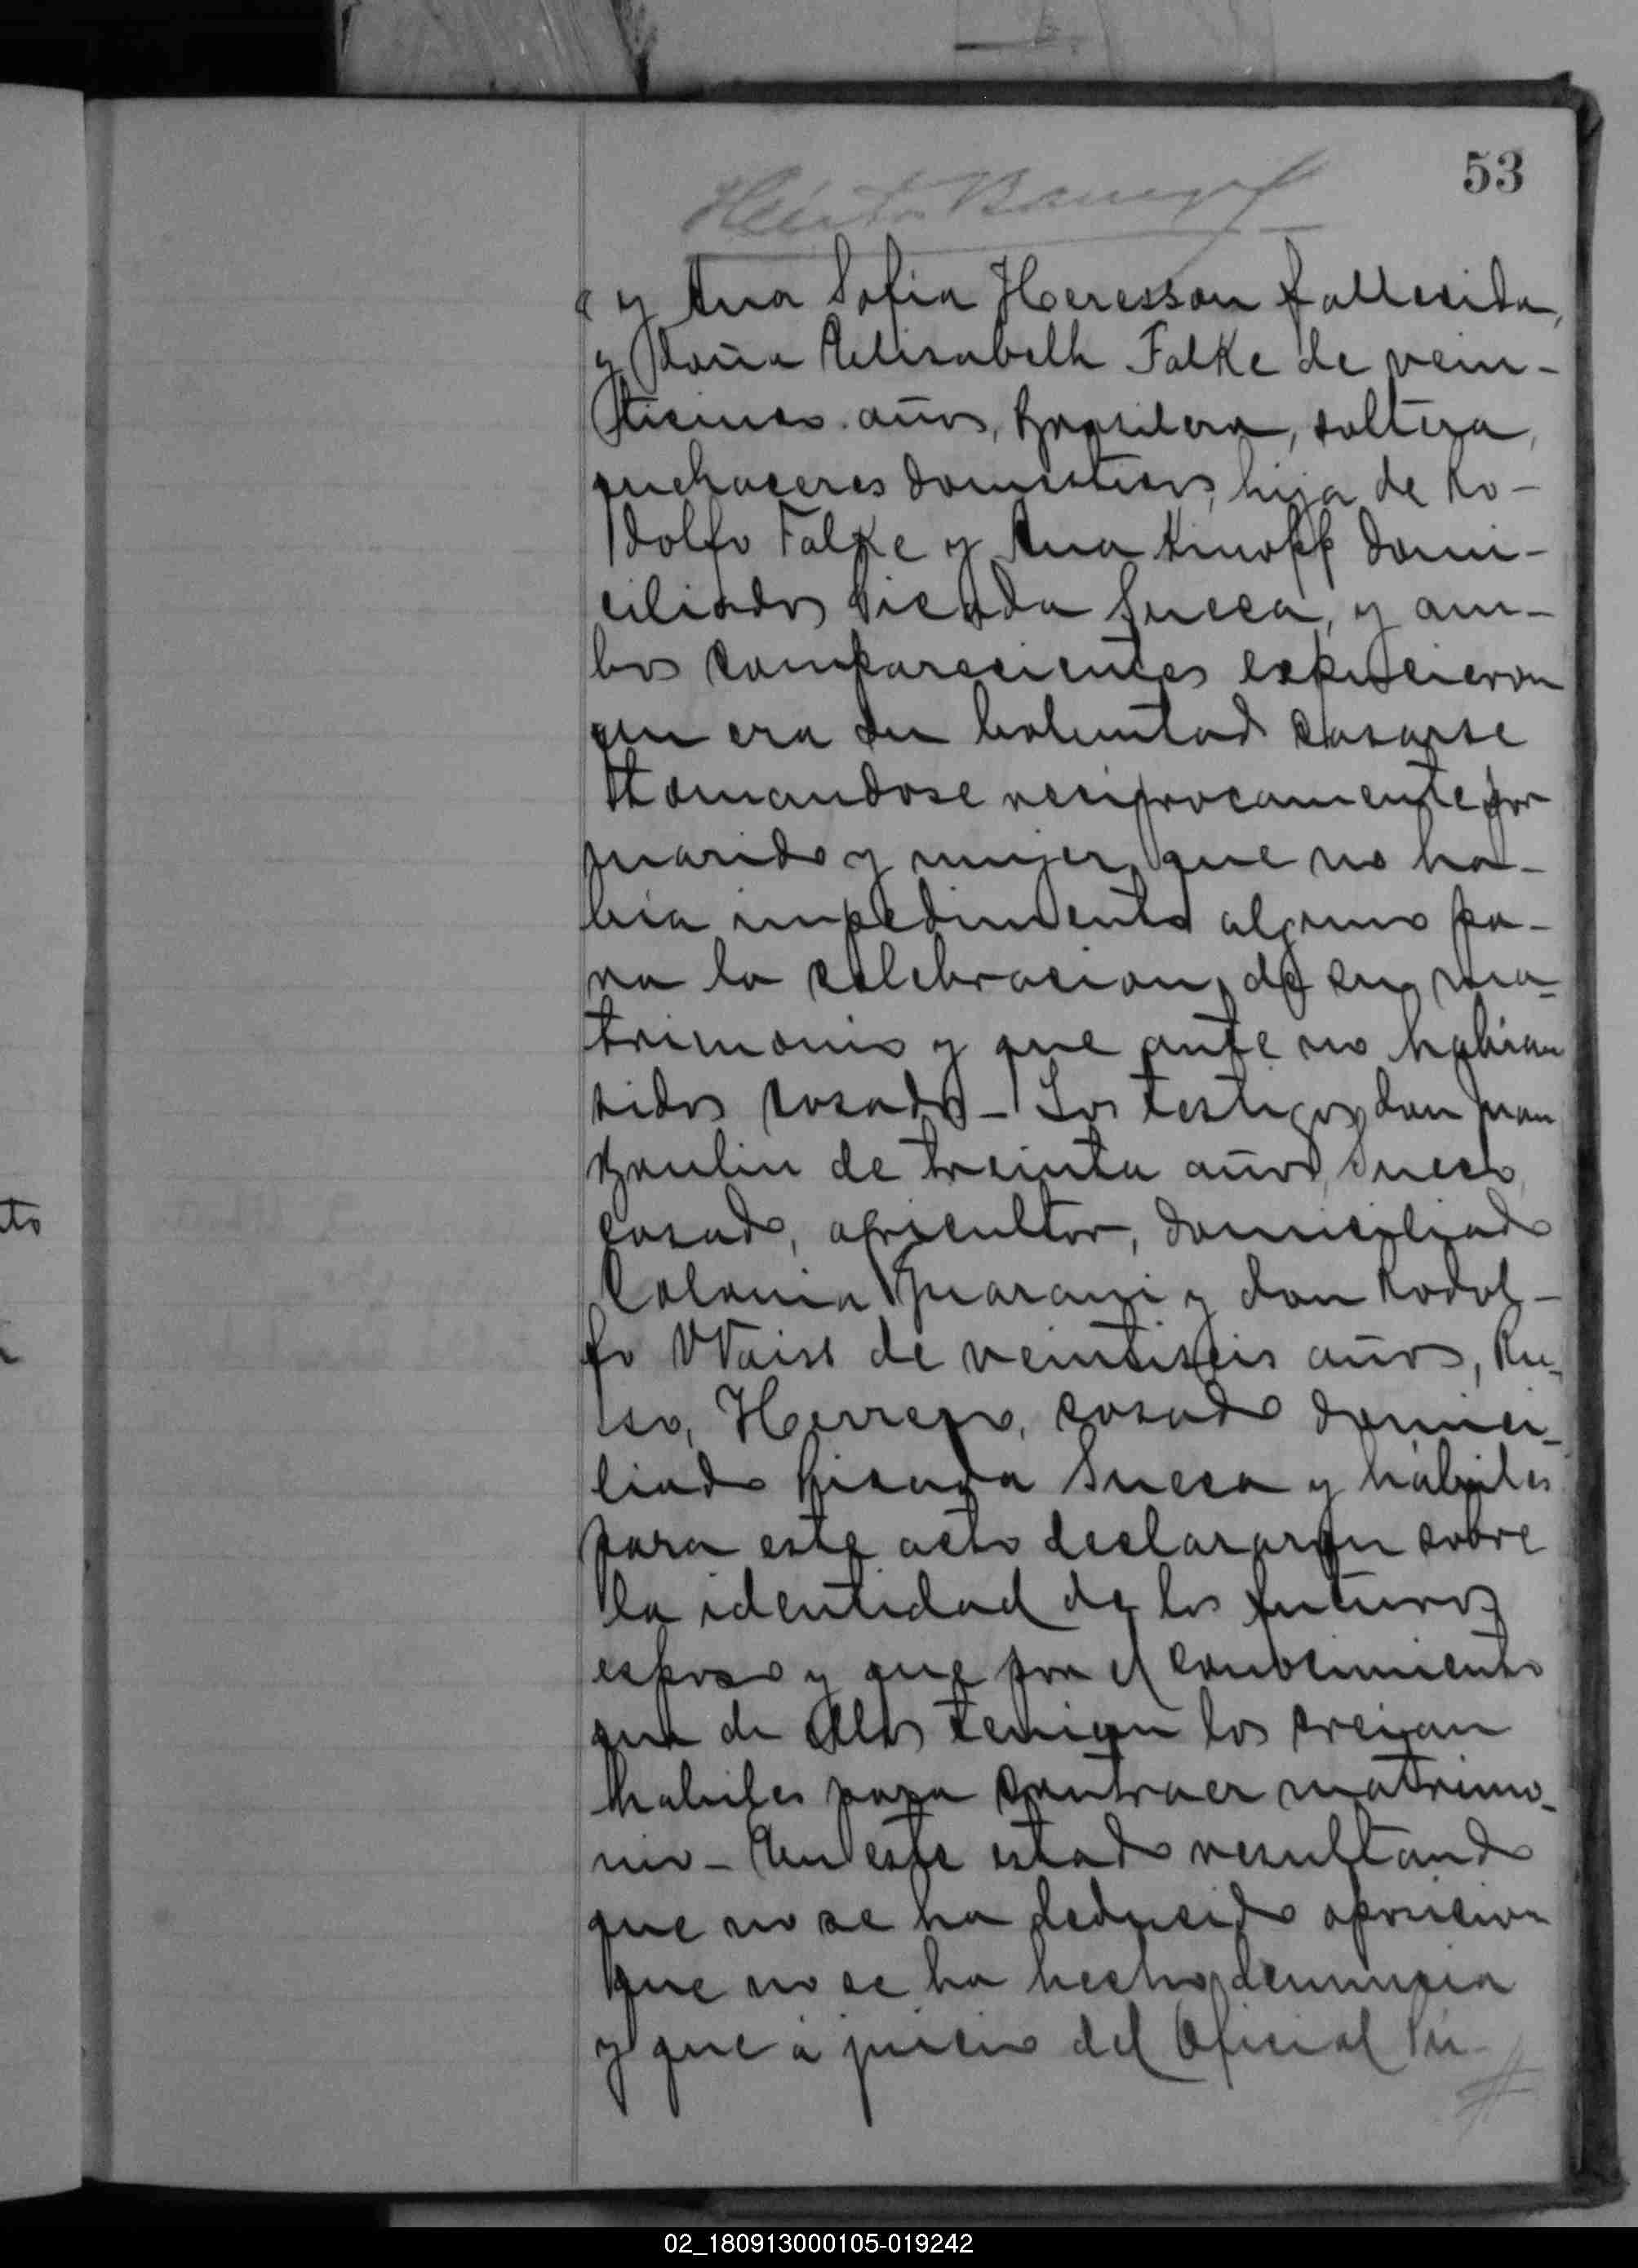 53
y Ana Sofia Heresson fallecida,
y doña Elisabelh Falke de vein-
ticinco años, Brasilera, soltera,
quehaceres domesticos, hija de Ro-
dolfo Falke y Ana Knopp domi-
ciliados Picada Sueca, y am-
bos comparecientes expucieron
que era su boluntad casarse
tomandose reciprocamente por
marido y mujer, que no ha-
bia impedimento alguno pa-
ra la celebracion de su ma-
trimonio y que ante no habian
sidos casado - Los testigos don Juan
Baulin de treinta años, Sueco,
casado, agricultor, domiciliado
Colonia Guarani y don Rodol-
fo Waiss de veintiseis años, Ru-
so, Herrero, casado domici-
liado Picada Sueca y hábiles
para este acto declararon sobre
la identidad de los futuros
esposo y que por el conocimiento
que de ellos tenian los creian
habiles para contraer matrimo-
nio - En este estado resultando
que no se ha deducido oposicion
que no se ha hecho denuncia
y que á juicio del Oficial Pú-
to
02_180913000105-019242